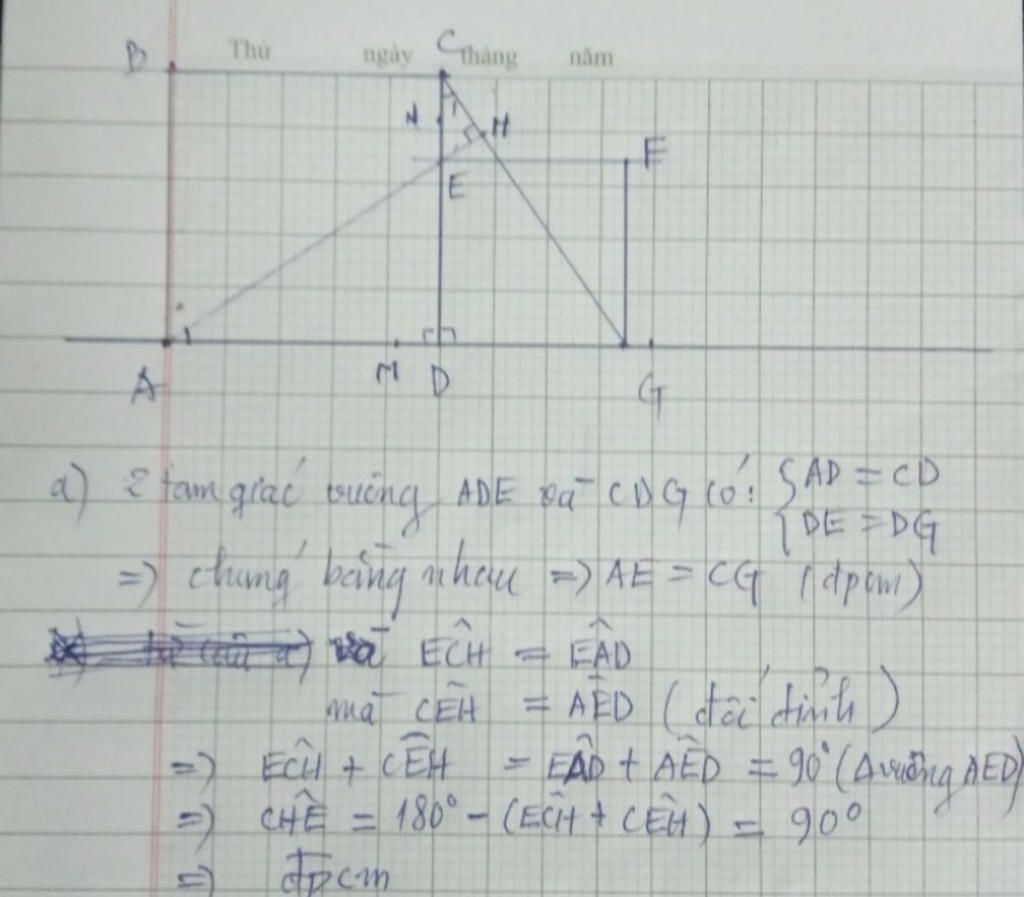 B Thứ ngày C tháng năm
N 1 H
E F
1
A M D G
a) 2 tam giác vuông ADE và CDG có: { AD = CD
DE = DG
=> chúng bằng nhau => AE = CG (đpcm)
và EĈH = EÂD
mà CÊH = AÊD (đối đỉnh)
=> EĈH + CÊH = EÂD + AÊD = 90° (Δ vuông AED)
=> CĤE = 180° - (EĈH + CÊH) = 90°
=> đpcm